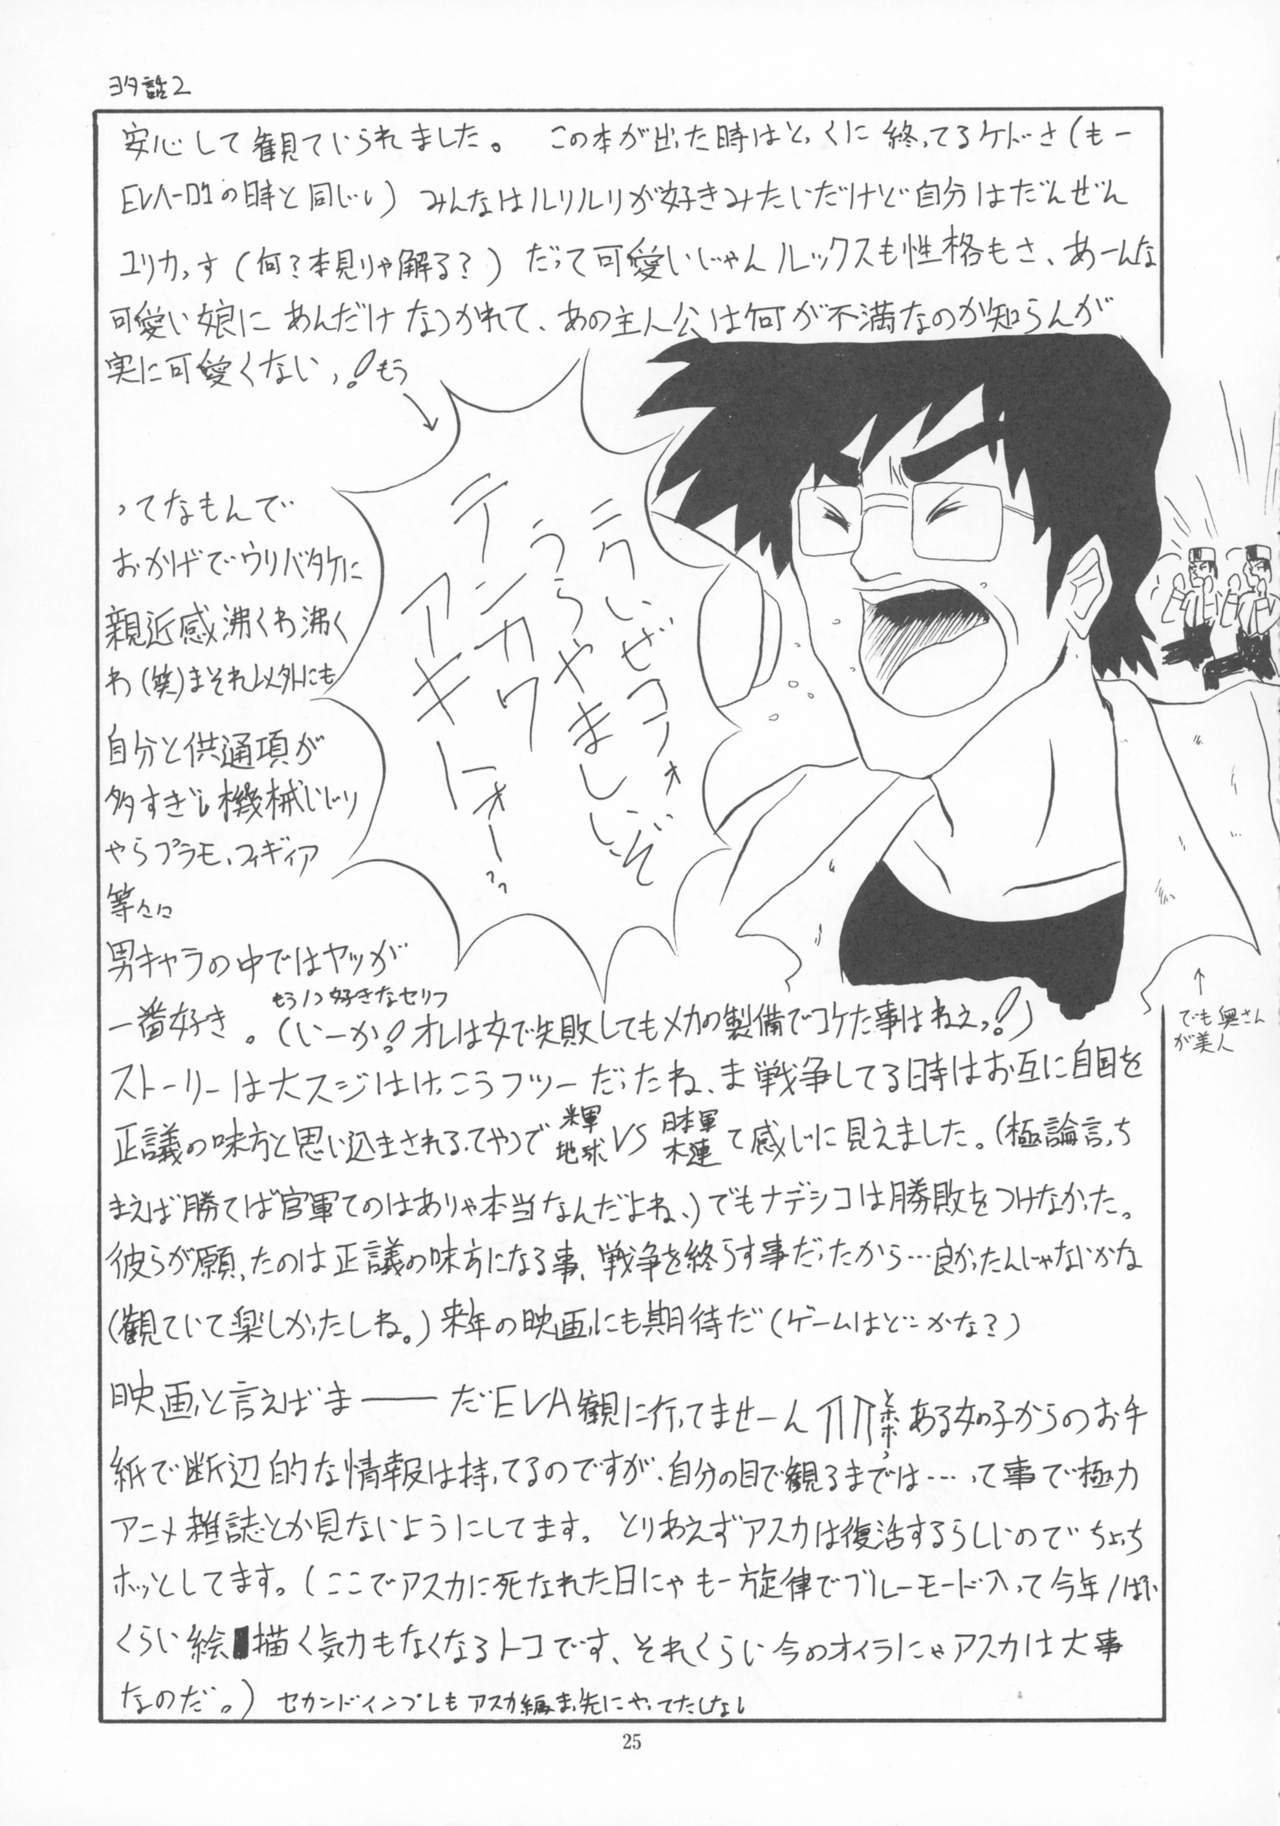 ヨタ話2
安心して観ていられました。 この本が出た時はとっくに終ってるケドさ(もー
EVA-01の時と同じい) みんなはルリルリが好きみたいだけど自分はだんぜん
ユリカっす(何?本見りゃ解る?)だって可愛いじゃんルックスも性格もさ、あーんな
可愛い娘にあんだけなつかれて、あの主人公は何が不満なのか知らんが
実に可愛くないっ!もう
ニクいぜコノォ
うらやましいぞ
テンカワ
アキトォーっ
ってなもんで
おかげでウリバタケに
親近感沸くわ沸く
わ(笑)まそれ以外にも
自分と供通項が
多すぎし機械いじり
やらプラモ、フィギィア
等々に
男キャラの中ではヤツが
もう1つ好きなセリフ
一番好き。(いーか!オレは女で失敗してもメカの製備でコケた事はねえっ!)
でも奥さん
が美人
ストーリーは大スジはけっこうフツーだったね、ま戦争してる時はお互に自国を
正議の味方と思い込まされるってやつで 米軍 地球 VS 日本軍 木連 て感じに見えました。(極論言っち
まえば勝てば官軍てのはありゃ本当なんだよね、)でもナデシコは勝敗をつけなかった。
彼らが願ったのは正議の味方になる事、戦争を終らす事だったから…良かったんじゃないかな
(観ていて楽しかったしね。)来年の映画にも期待だ(ゲームはどこかな?)
映画と言えばま――だEVA観に行ってませーん トホホっ ある女の子からのお手
紙で断辺的な情報は持ってるのですが、自分の目で観るまでは…って事で極力
アニメ雑誌とか見ないようにしてます。とりあえずアスカは復活するらしいのでちょっち
ホッとしてます。(ここでアスカに死なれた日にゃもー旋律でブルーモード入って今年1ぱい
くらい絵描く気力もなくなるトコです、それくらい今のオイラにゃアスカは大事
なのだ。) セカンドインプレもアスカ編まっ先にやってたしなし
25